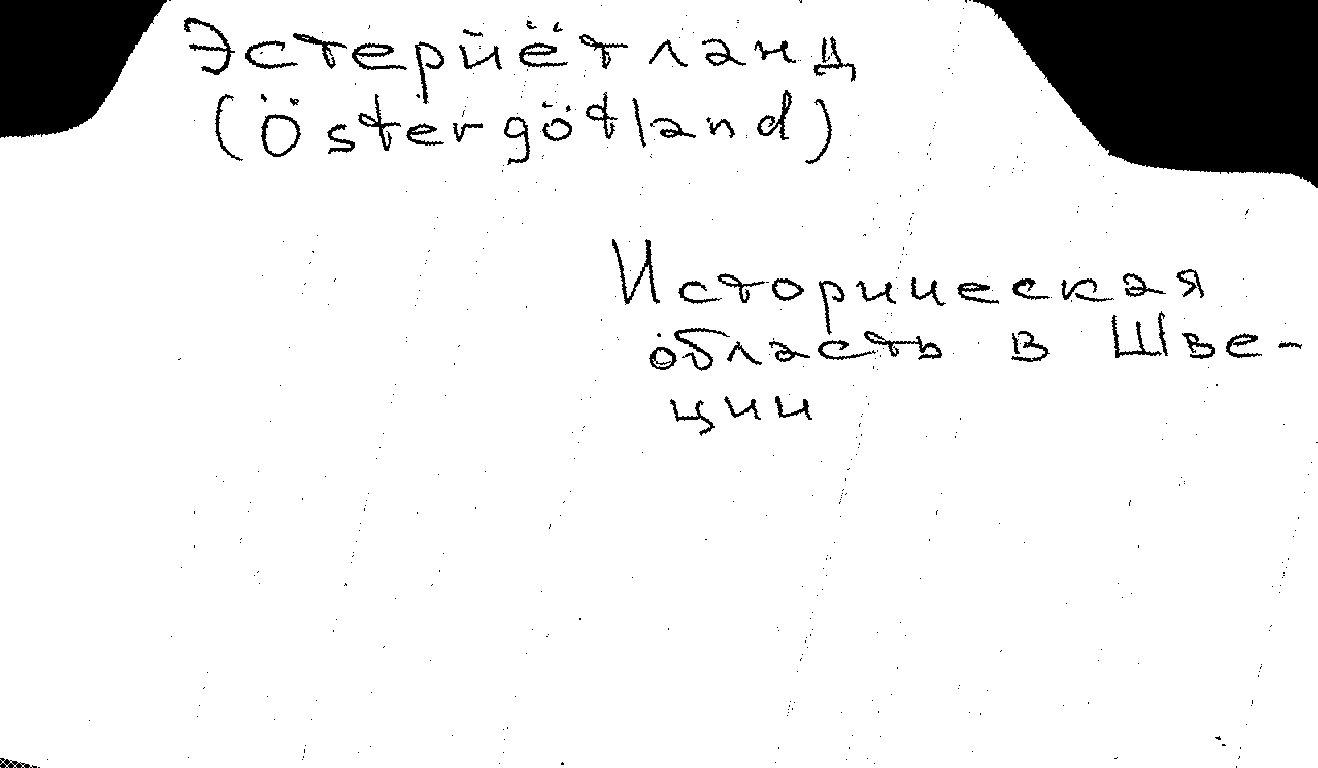 Эстерйётланд
(Östergötland)
Историческая
область в Шве-
ции